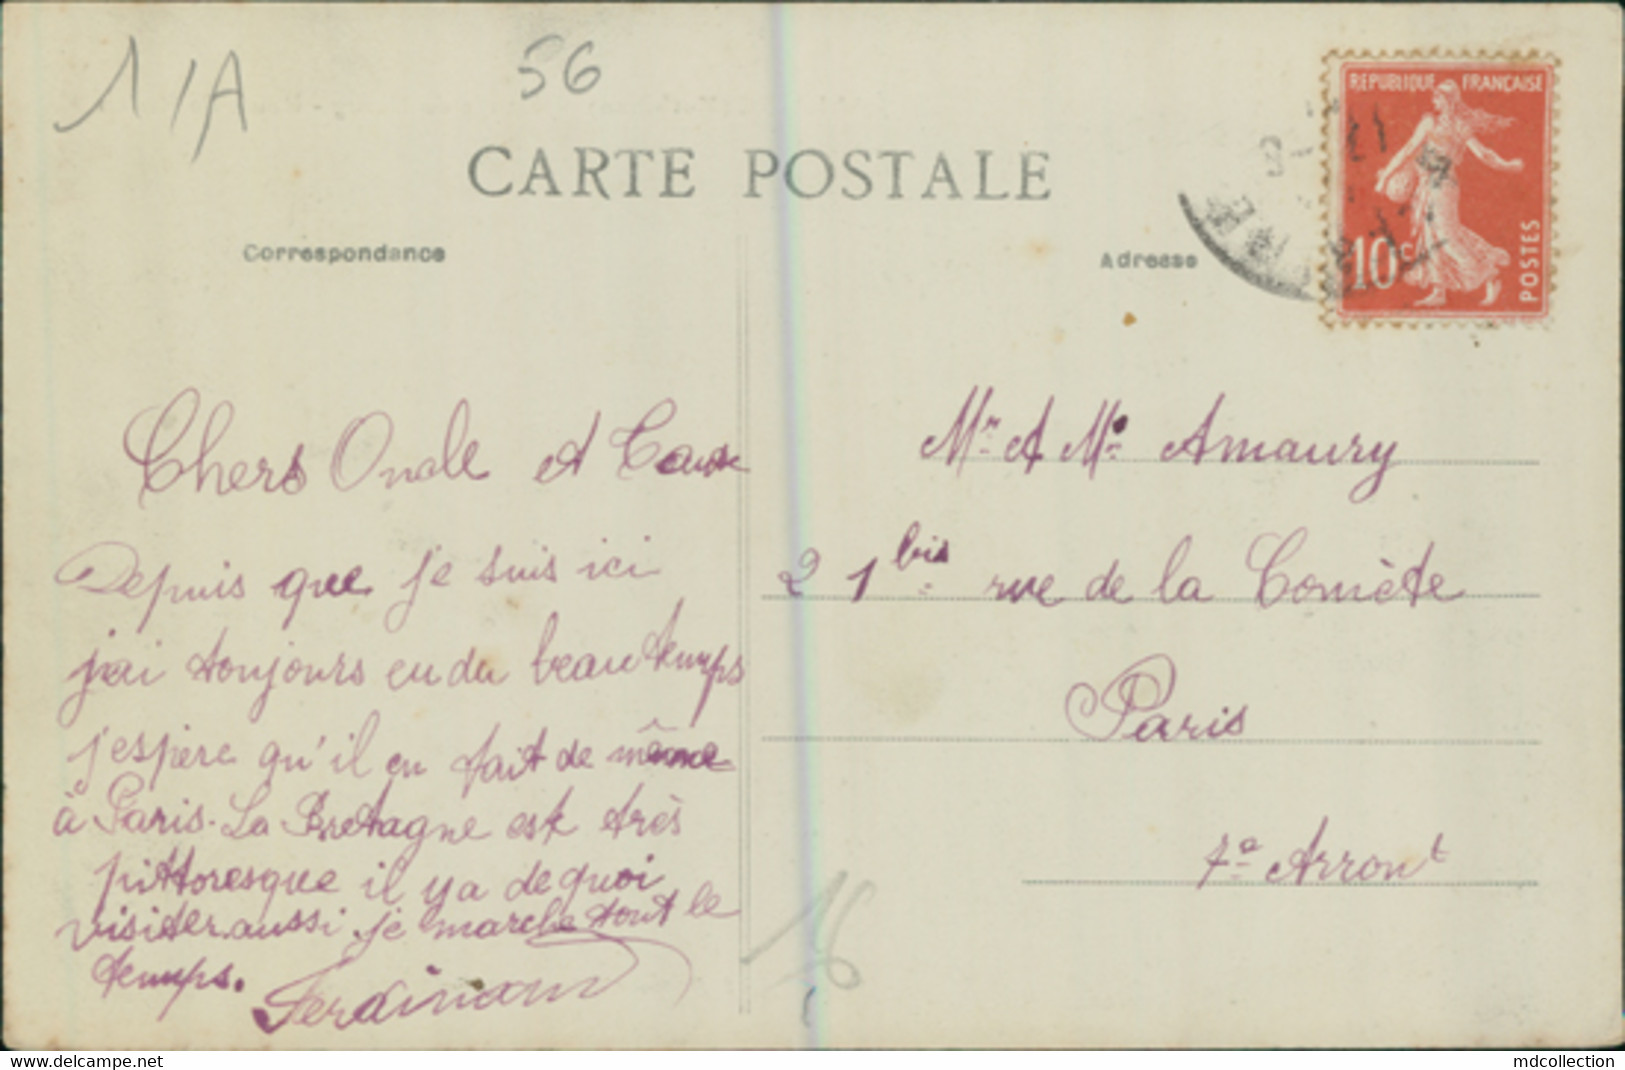 1/A
56
CARTE POSTALE
Correspondance
Adresse
REPUBLIQUE FRANÇAISE
10c
POSTES
Chers Oncle et
Depuis que je suis ici
j'ai toujours eu du beau temps
j'espère qu'il en fait de même
à Paris. La Bretagne est très
pittoresque il y a de quoi
visiter. aussi je marche tout le
temps.
Ferdinand
Mr et Me Amaury
21 bis rue de la Comète
Paris
7e Arront
16
delcampe.net
mdcollection